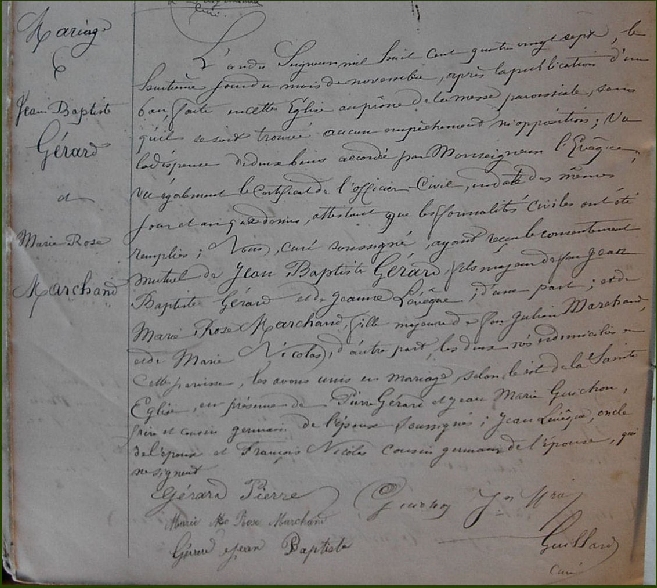 Mariage
Jean Baptiste
Gérard
et
Marie Rose
Marchand
L'an du Seigneur mil huit cent quatre vingt sept, le
huitième jour du mois de novembre, après la publication d'un
ban, faite en cette Eglise au prône de la messe paroissiale, sans
qu'il se soit trouvé aucun empêchement ni opposition ; Vu
la dispense de deux bans accordée par Monseigneur l'Evêque ;
vu également le certificat de l'officier civil, en date des mêmes
jour et an que dessus, attestant que les formalités civiles ont été
remplies ; Nous, curé soussigné, ayant reçu le consentement
mutuel de Jean Baptiste Gérard fils majeur de feu Jean
Baptiste Gérard et de Jeanne Levêque, d'une part ; et de
Marie Rose Marchand, fille majeure de feu Julien Marchand,
et de Marie Nicolas, d'autre part, les deux nés domiciliés en
cette paroisse, les avons unis en mariage, selon le rit de la Sainte
Eglise, en présence de Pierre Gérard et Jean Marie Guichon,
frère et cousin germain de l'époux soussignés ; Jean Levêque, oncle
de l'époux et François Nicolas cousin germain de l'épouse, qui
ne signent
Gérard Pierre
Jn Mra
Marie Rose Marchand
Gérard Jean Baptiste
Guillard
curé